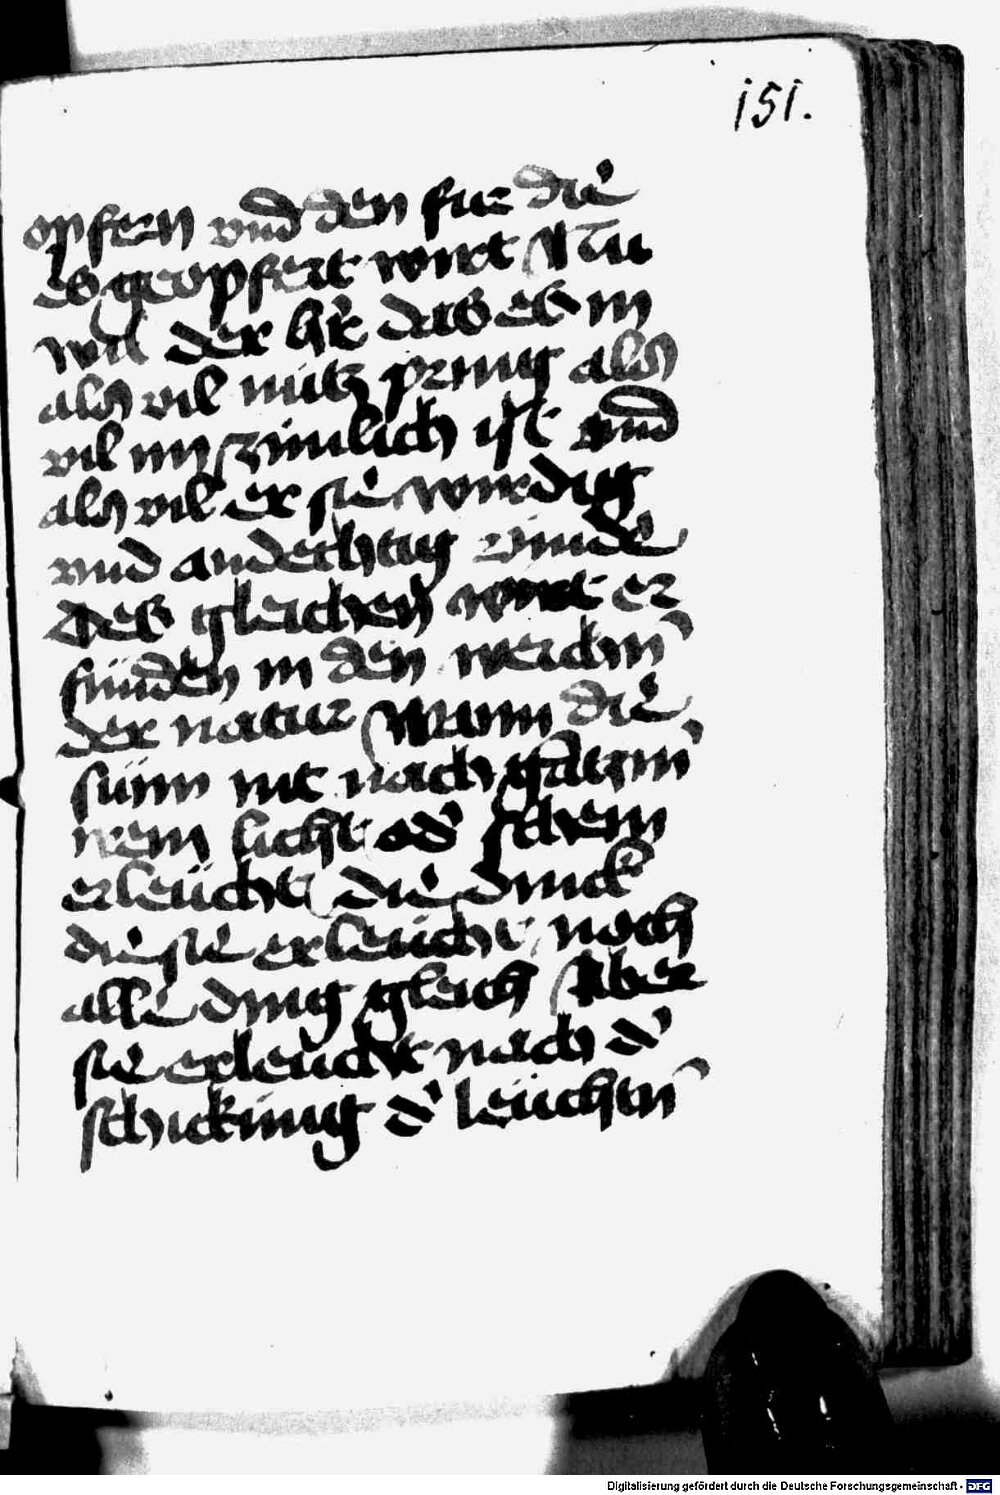 151.
opfern vnd den fur die
es geopfert wirt Nu
wil der her das es in
als vil nütz pring als
vil im zimlich ist vnd
als vil er sie wirdig
vnd andechtig vinde
Des gleichen wirt er
funden in den werchn̄
der natur Wann die
sünn nit nach gātzm̄
irem licht od' schein
erleücht die dinck
die sie erleücht noch
alle ding gleich Aber
sie erleucht nach d'
schickung d' leüchtn̄
Digitalisierung gefördert durch die Deutsche Forschungsgemeinschaft - DFG